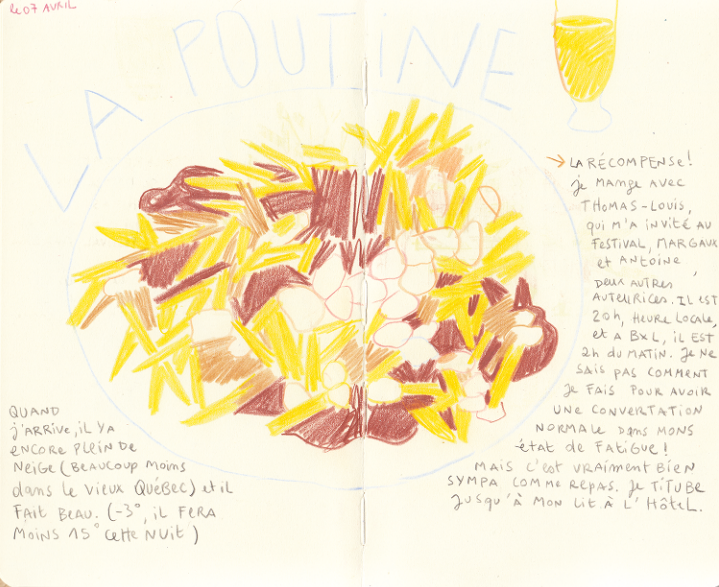 le 07 AVRIL
LA POUTINE
→ LA RÉCOMPENSE!
je MANGE AVEC
THOMAS-LOUIS,
qui m'A iNViTÉ AU
FESTIVAL, MARGAUX
et ANTOiNE,
DEUX AUTRES
AUTEURICES. IL EST
20h, HEURE LOCALE,
et A BXL, iL EST
2h du MATiN. JE NE
SAiS PAS COMMENT
JE FAiS POUR AVOiR
UNE CONVERTATiON
NORMALE DANS MONS
état de FATiGUE!
MAiS C'EST VRAiMENT BiEN
SYMPA COMME REPAS. JE TiTUBE
JUSQU'À MON LiT À L'HÔTEL.
QUAND
j'ARRiVE, iL YA
ENCORE PLEiN DE
NEiGE (BEAUCOUP MOiNS
dANS LE ViEUX QUÉBEC) et iL
FAiT BEAU. (-3°, iL FERA
MOiNS 15° CETTE NUiT)